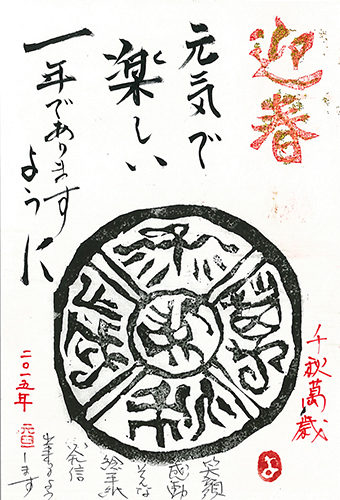 迎春
元気で
楽しい
一年であります
ように
千秋萬歳
笑顔
感動
そんな
絵手紙
発信
出来るよう
二〇一五年
します
よ